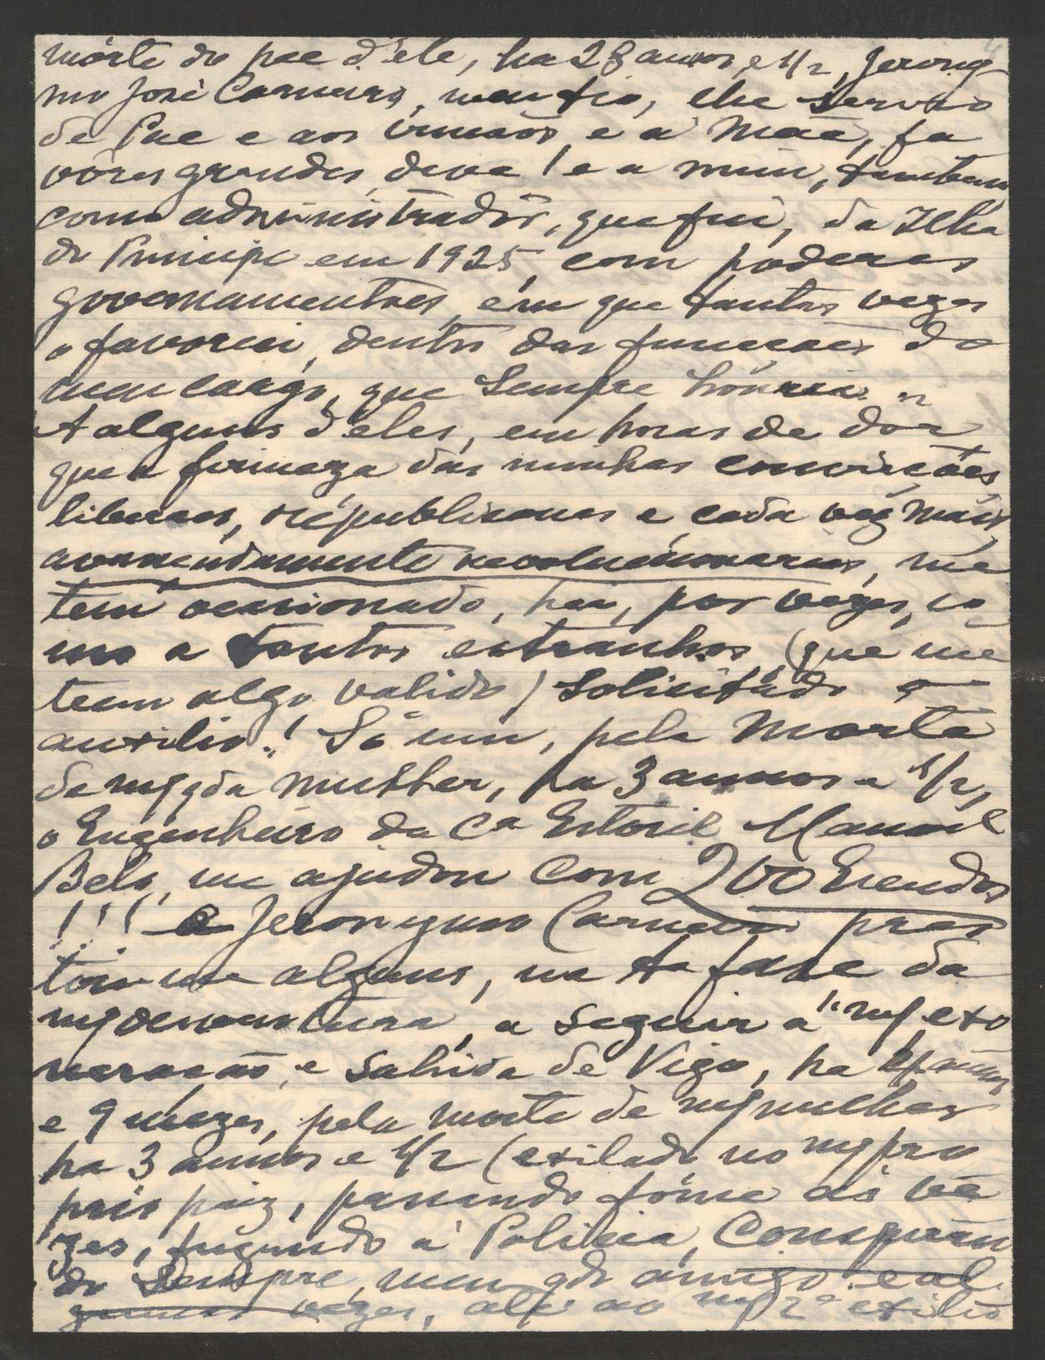 mórte do pae d'ele, ha 28 annos e 1/2, Jerony-
mo José Carneiro, meu tio, lhe serviu
de Pae e aos irmaos e a Mãe, fa
vôres grandes, deve! e a mim, tambem,
como administradôr, que fui, da Ilha
do Principe em 1925, com poderes
governamentaes, em que tantas vezes
o favoreci, dentro das funcções do
meu cargo, que sempre honrei.
A alguns d'eles, em horas de dor
que a firmeza das minhas convicções
liberaes, républicanas e cada vez mais
avançadamente revolucionarias, me
tem ocasionado, hei, por vezes, co
mo a tantos extranhos, (que me
tem algo valido) solicitado o
auxilio.! Só um, pela Morte
de m/ qda mulher, ha 3 annos e 1/2,
o Engenheiro da Ca Estoril Manoel
Belo, me ajudou com 200 Escudos
!!! e Jeronymo Carneiro pres
tou-me alguns, na 1a fase da
m/ desventura, a seguir a m/ exo
neração, e sahida de Vigo, ha annos
e 9 mezes, pela morte de m/ mulher
ha 3 annos e 1/2 (exilado no m/ pro
prio paiz, passando fóme ás ve
zes, fugindo á Policia, Conspiran
do Sempre, meu qdo amigo e al
gumas vezes, até ao m/ 2o exilio